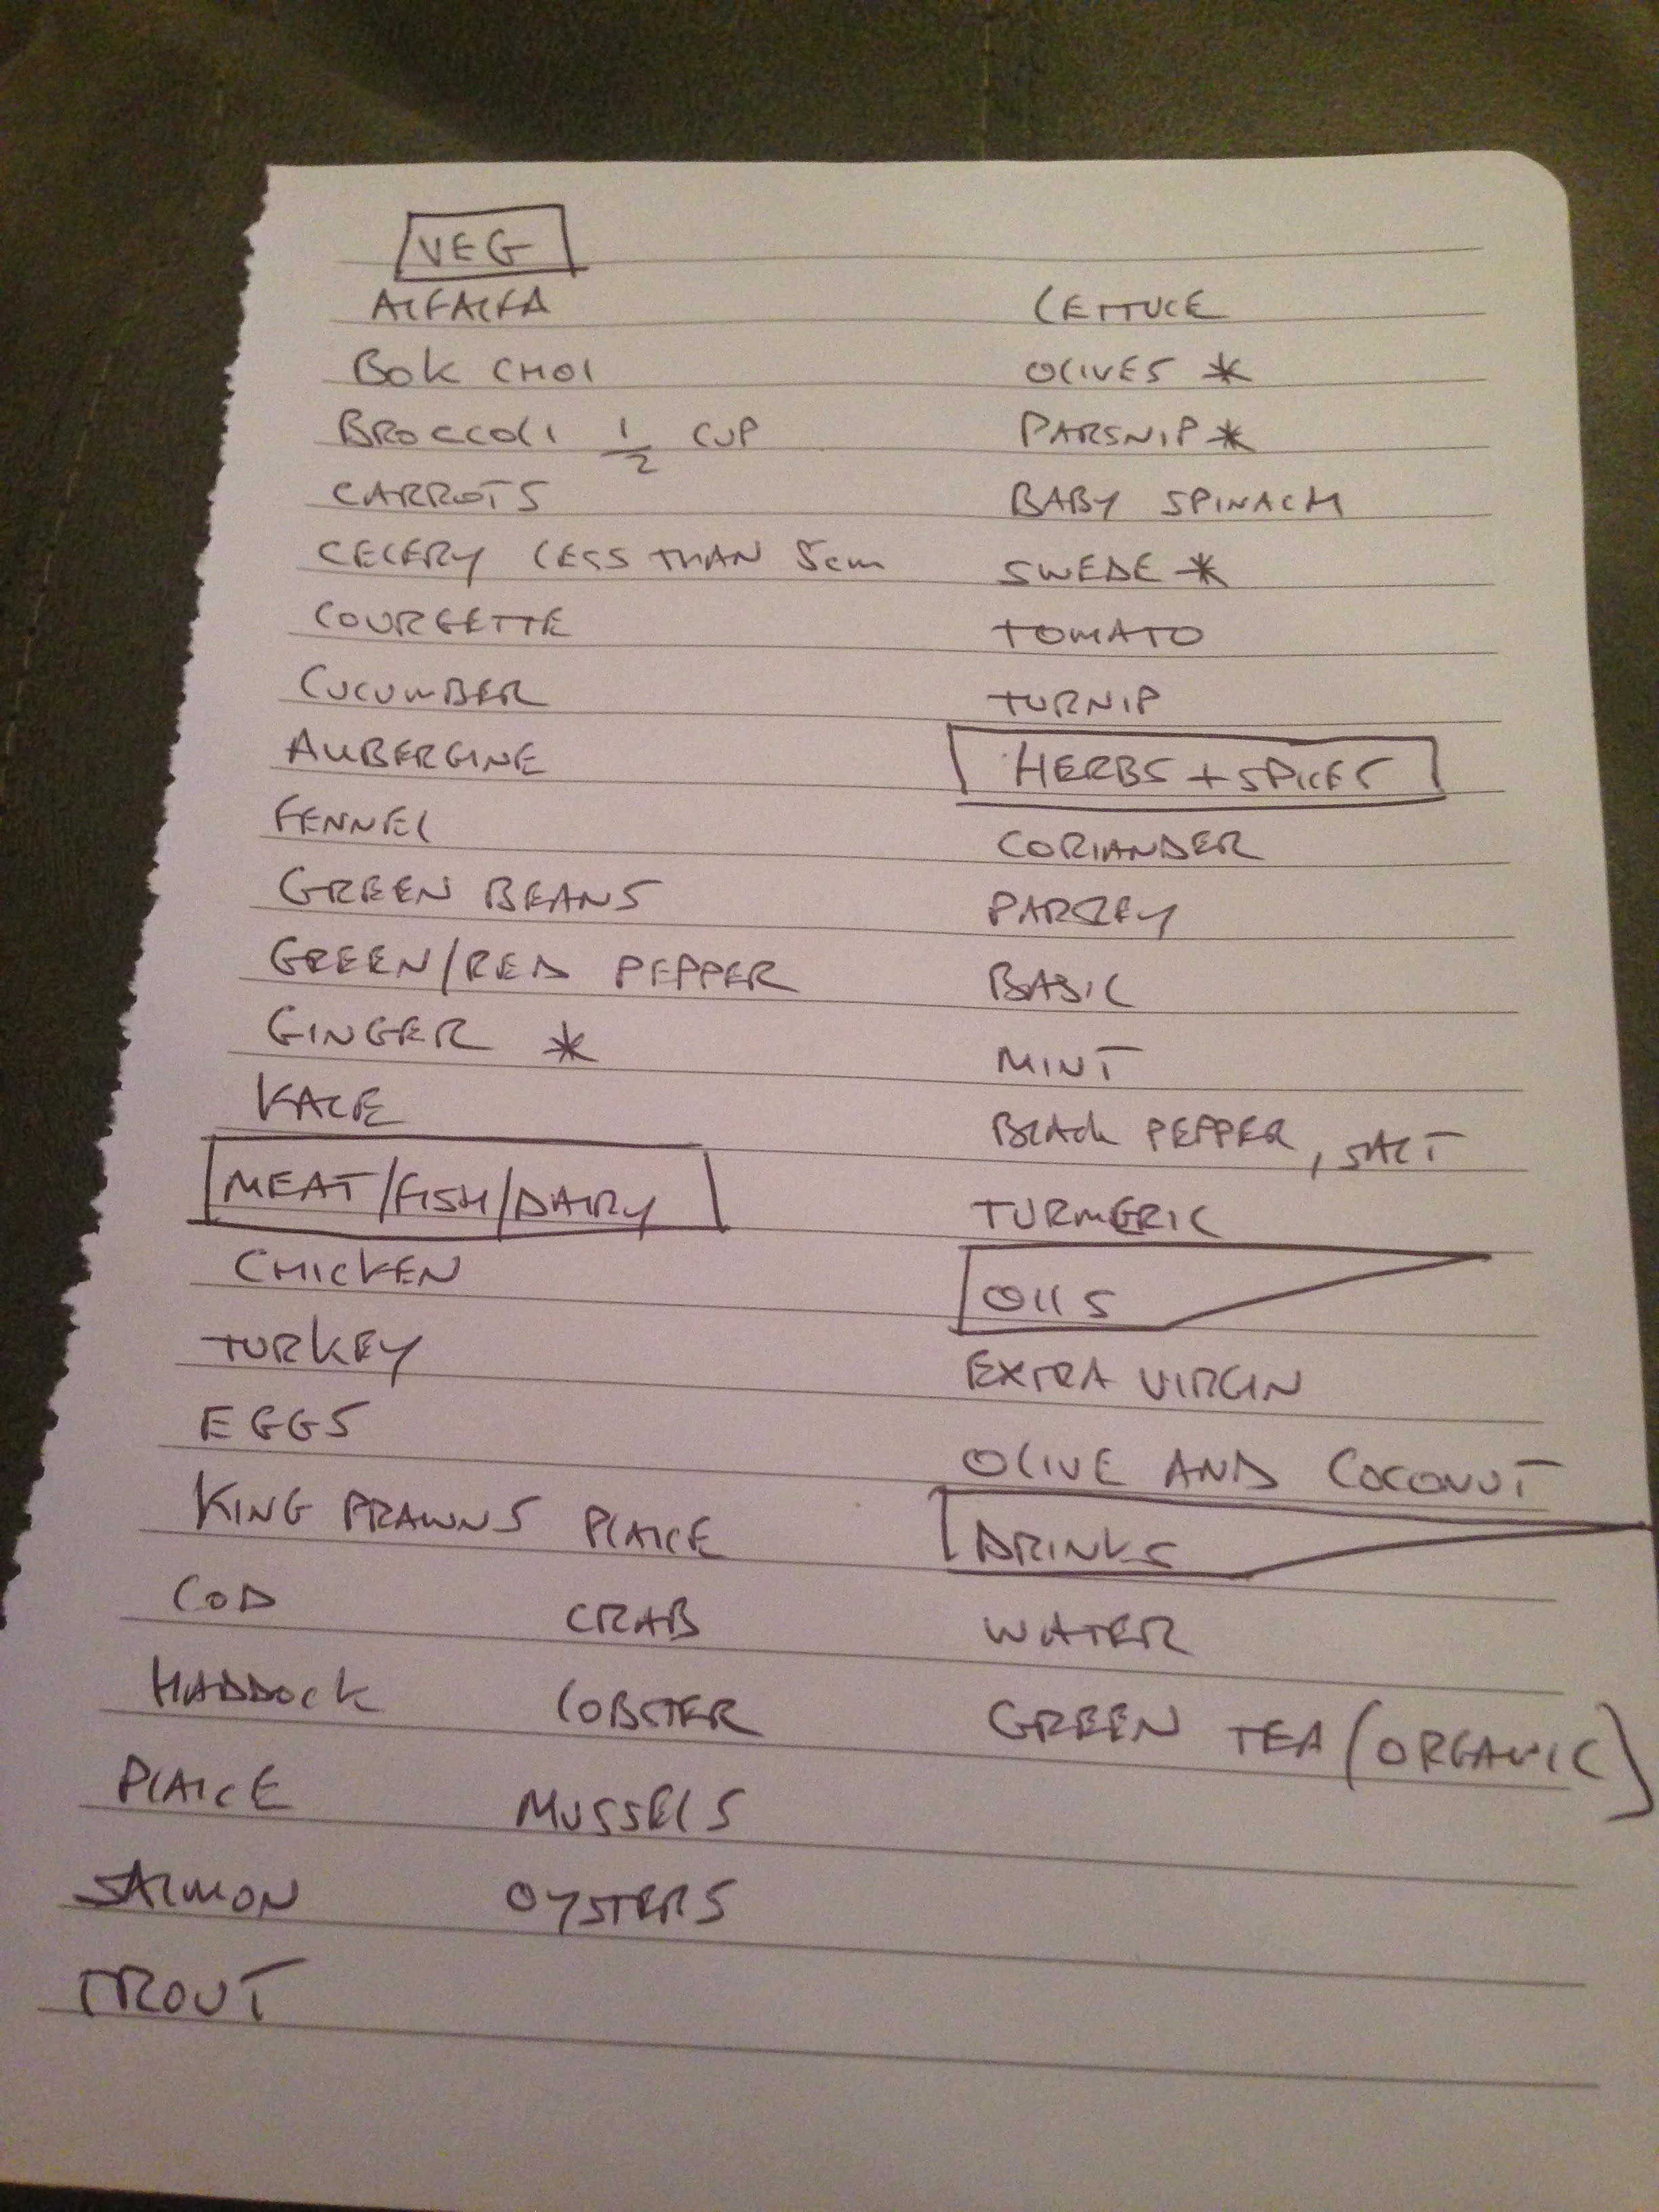 VEG
ALFALFA
BOK CHOI
BROCCOLI 1/2 CUP
CARROTS
CELERY LESS THAN 5cm
COURGETTE
CUCUMBER
AUBERGINE
FENNEL
GREEN BEANS
GREEN/RED PEPPER
GINGER *
KALE
MEAT/FISH/DAIRY
CHICKEN
TURKEY
EGGS
KING PRAWNS PLAICE
COD CRAB
HADDOCK LOBSTER
PLAICE MUSSELS
SALMON OYSTERS
TROUT
LETTUCE
OLIVES *
PARSNIP *
BABY SPINACH
SWEDE *
TOMATO
TURNIP
HERBS + SPICES
CORIANDER
PARSLEY
BASIL
MINT
BLACK PEPPER, SALT
TURMERIC
OILS
EXTRA VIRGIN
OLIVE AND COCONUT
DRINKS
WATER
GREEN TEA (ORGANIC)